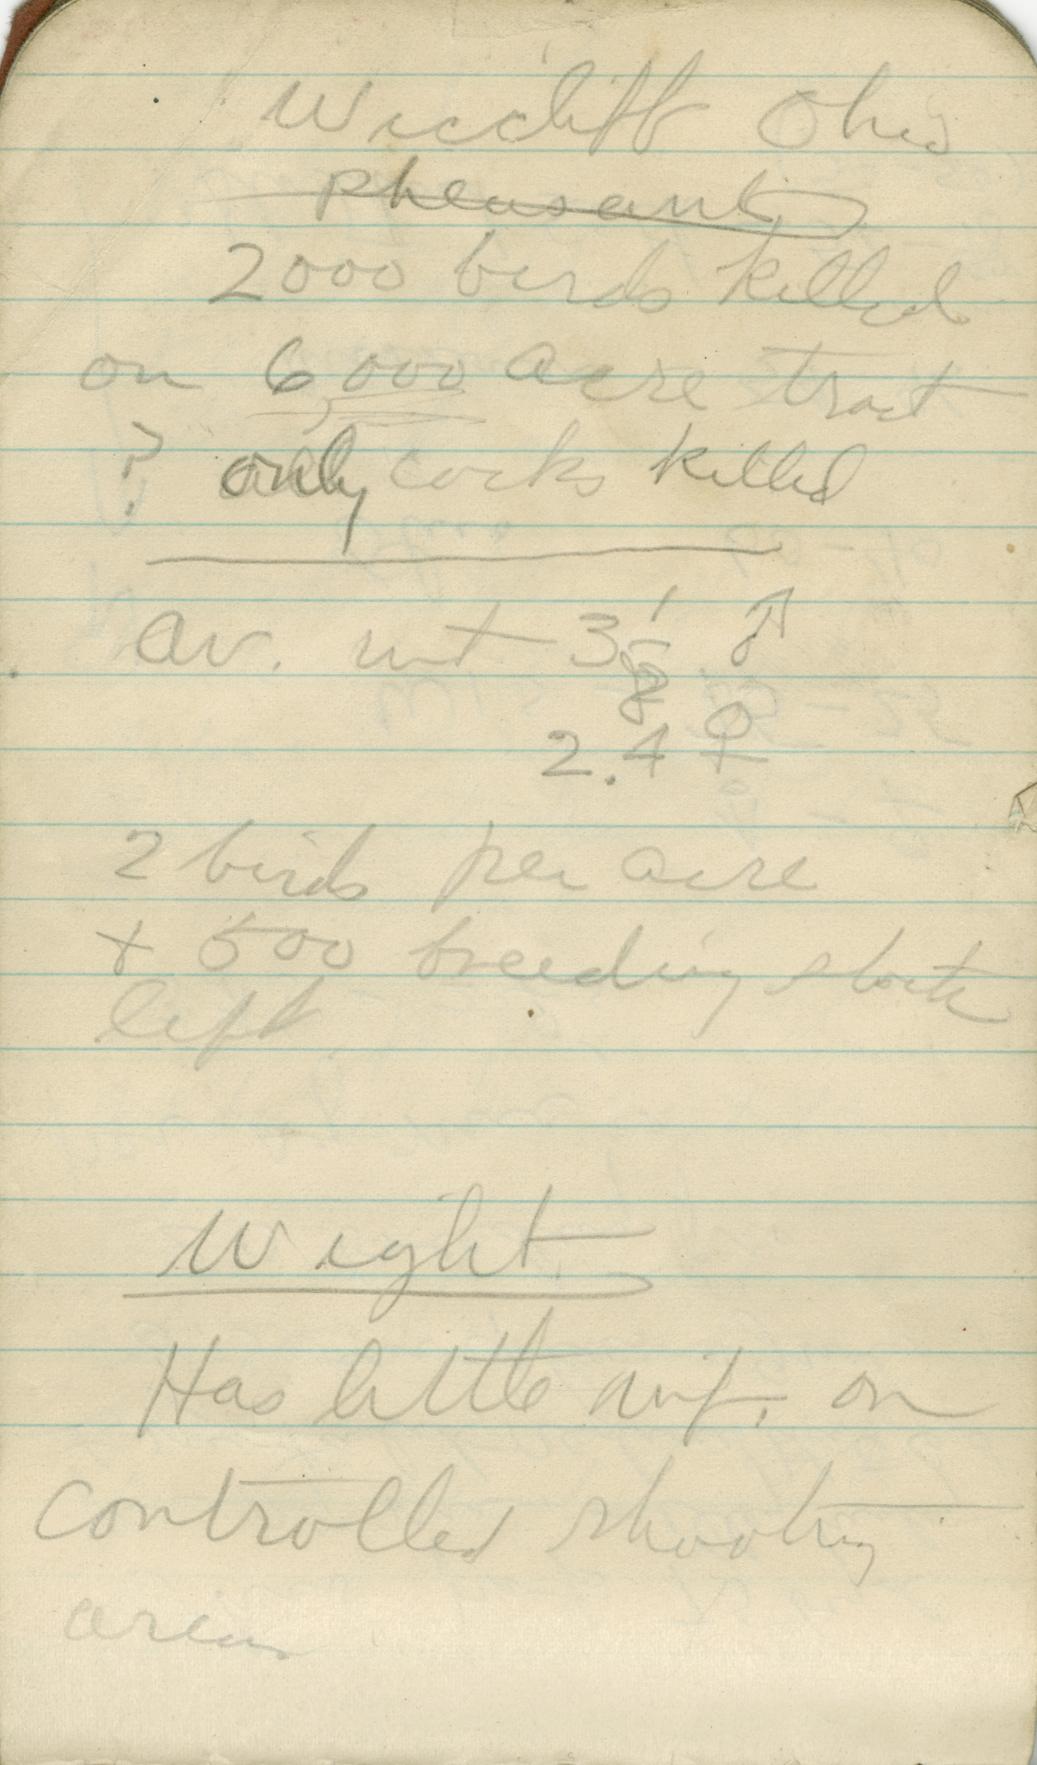 Wiccliff Ohio
Pheasants
2000 birds killed
on 6,000 acre tract
? only cocks killed
av. wt 3 1/8 ♂
2.4 ♀
2 birds per acre
+ 500 breeding stock
left
Wight
Has little inf. on
controlled shooting
areas